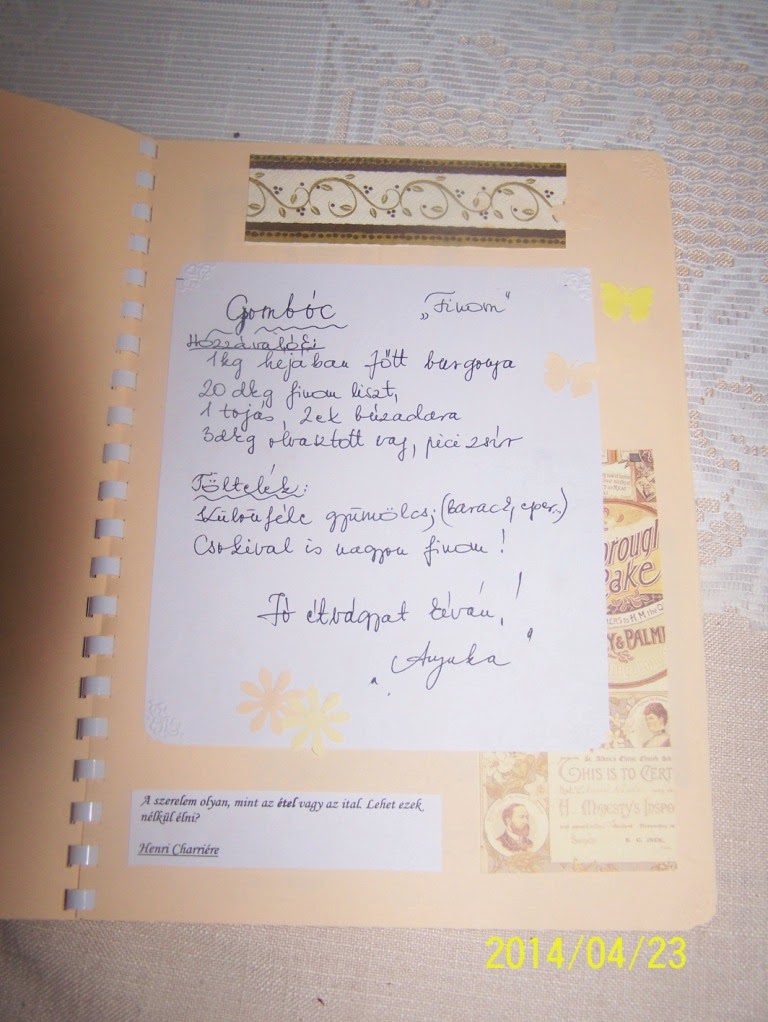 Gombóc „Finom"
Hozzávalók:
1kg héjában főtt burgonya
20 dkg finom liszt,
1 tojás, 2ek búzadara
3dkg olvasztott vaj, pici zsír
Töltelék:
Különféle gyümölcs; (barack, eper,)
Csokival is nagyon finom!
Jó étvágyat kíván,!
Anyuka
A szerelem olyan, mint az étel vagy az ital. Lehet ezek
nélkül élni?
Henri Charriére
Y & PALM
THIS IS TO CERT
H. MAJESTY'S INSPE
2014/04/23